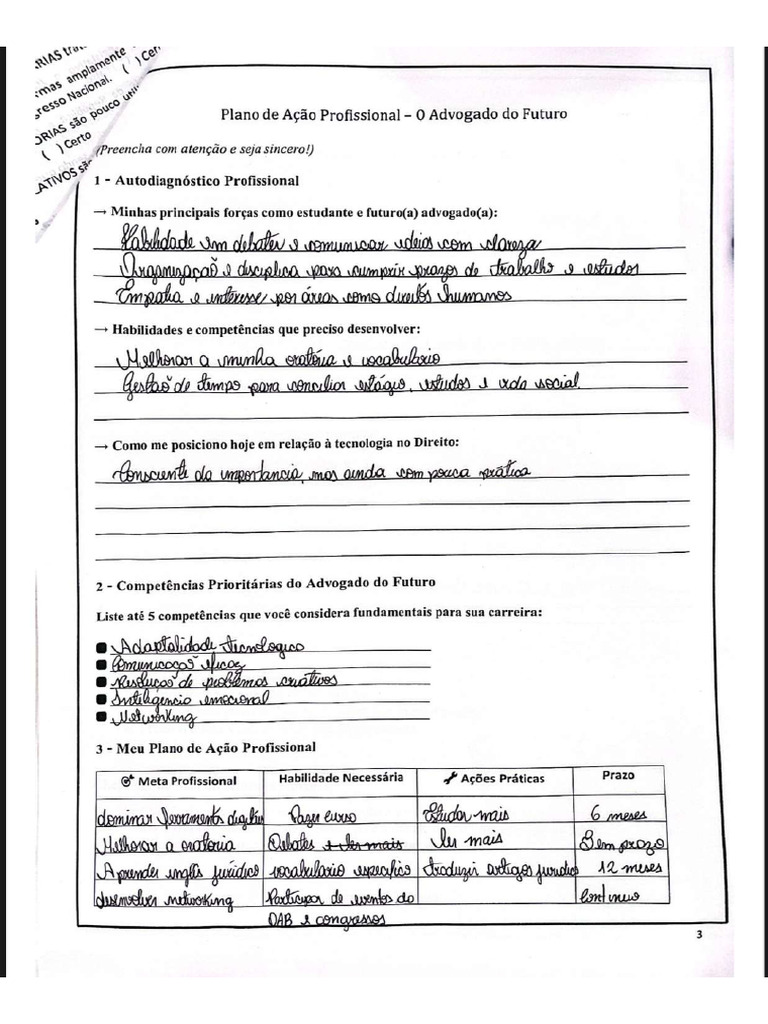 RIAS
rmas amplamente
gresso Nacional. ( ) Cer
ORIAS são pouco
( ) Certo
LATIVOS sã
Plano de Ação Profissional – O Advogado do Futuro
(Preencha com atenção e seja sincero!)
1 - Autodiagnóstico Profissional
→ Minhas principais forças como estudante e futuro(a) advogado(a):
Habilidade em debater e comunicar ideias com clareza
Organização e disciplica para cumprir prazos de trabalho e estudos
Empatia e interesse por áreas como direitos humanos
→ Habilidades e competências que preciso desenvolver:
Melhorar a minha oratória e vocabulario
Gestão de tempo para conciliar estágio, estudos e vida social
→ Como me posiciono hoje em relação à tecnologia no Direito:
Consciente da importancia, mas ainda com pouca prática
2 - Competências Prioritárias do Advogado do Futuro
Liste até 5 competências que você considera fundamentais para sua carreira:
Adaptalidade tecnologico
Comunicação eficaz
Resolução de problemas criativos
Inteligencia emocional
Networking
3 - Meu Plano de Ação Profissional
Meta Profissional Habilidade Necessária Ações Práticas Prazo
dominar ferramenta digitais Fazer curso Estudar mais 6 meses
Melhorar a oratoria Debates e ler mais ler mais Sem prazo
Aprender inglês jurídico vocabulario especifico traduzir artigos juridico 12 meses
desenvolver networking Participar de eventos da continuo
OAB e congressos
3